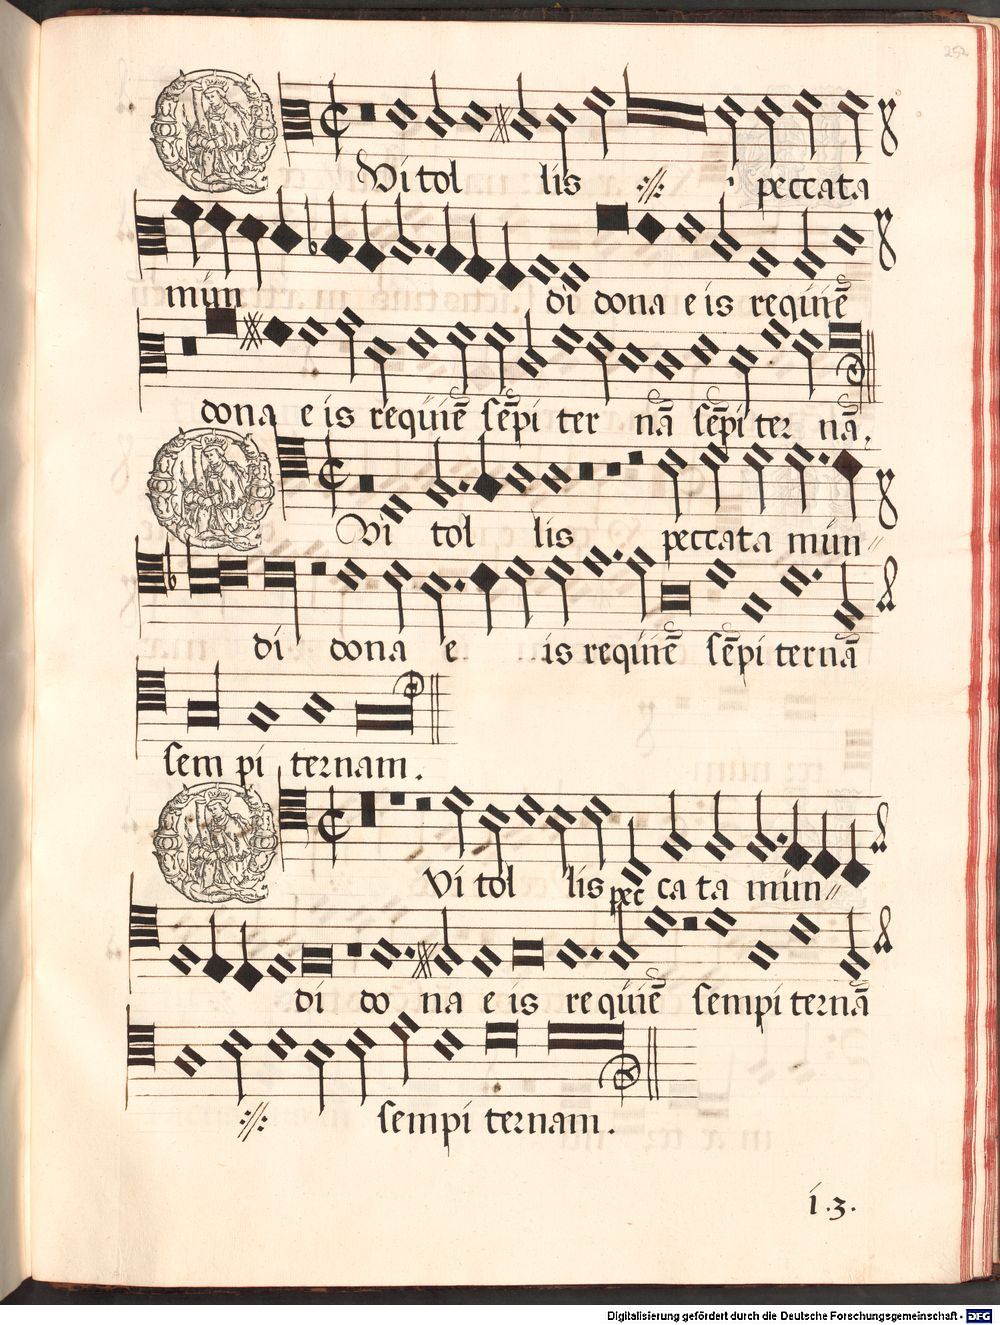 252
Vi tol lis ·//· peccata
mún
di dona e is requiē
dona e is requiē sēpi ter nā sēpi ter nā.
Vi tol lis peccata mún〃
di dona e is requiē sēpi ternā
sem pi ternam.
Vi tol lis pec ca ta mún〃
di do na e is re quiē sempi ternā
·//· sempi ternam.
í.3.
Digitalisierung gefördert durch die Deutsche Forschungsgemeinschaft - DFG